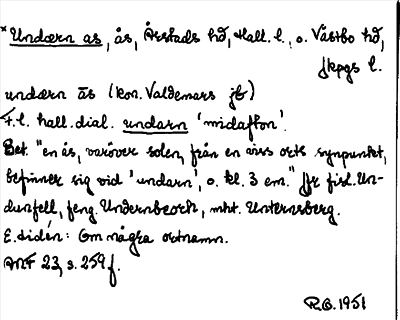 *Undærn as, ås, Årstads hd, Hall. l., o. Västbo hd,
Jkpgs l.
undærn ās (kon. Valdemars jb)
T. l. hall. dial. undarn 'midafton'.
Bet. "en ås, varöver solen, från en viss orts synpunkt,
befinner sig vid 'undarn', o. kl. 3 em." Jfr fisl. Un-
dunfell, feng. Undernbeorh, mht. Unternsberg.
E. Lidén: Om några ortnamn.
ANF 23, s. 259 f.
R.G. 1951